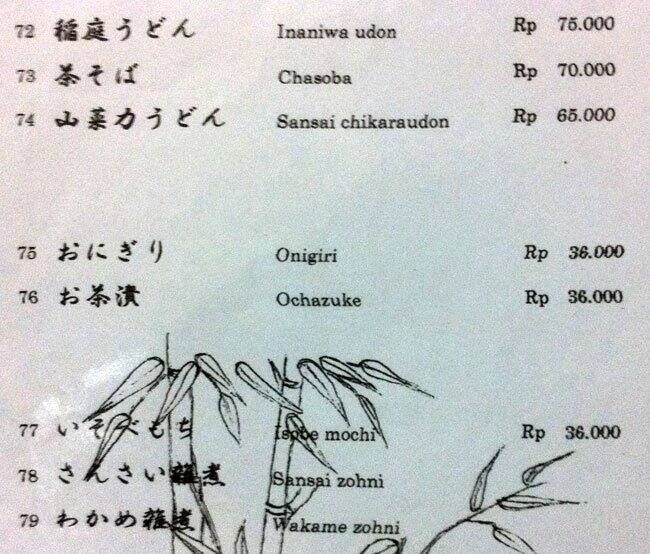 72 稲庭うどん Inaniwa udon Rp 75.000
73 茶そば Chasoba Rp 70.000
74 山菜力うどん Sansai chikaraudon Rp 65.000
75 おにぎり Onigiri Rp 36.000
76 お茶漬 Ochazuke Rp 36.000
77 いそべもち Isobe mochi Rp 36.000
78 さんさい雑煮 Sansai zohni
79 わかめ雑煮 Wakame zohni